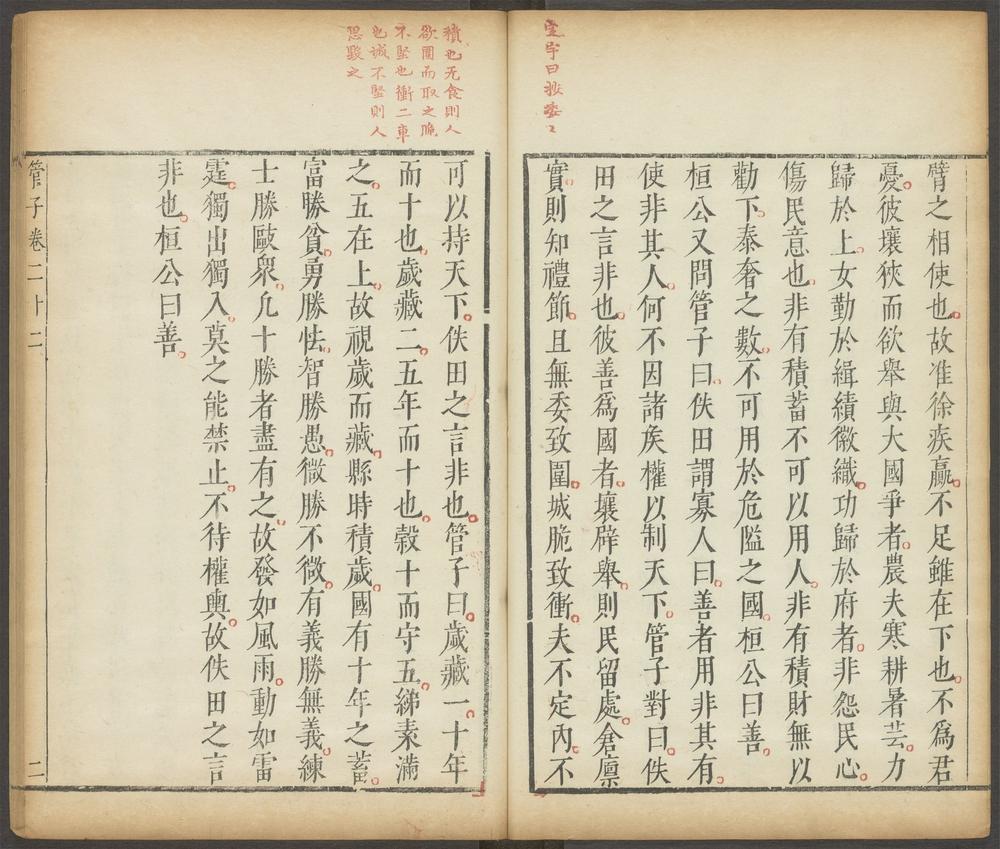 臂之相使也故准徐疾羸不足雖在下也不爲君
憂彼壤狹而欲舉與大國爭者農夫寒耕暑芸力
歸於上女勤於緝績徽織功歸於府者非怨民心
傷民意也非有積蓄不可以用人非有積財無以
勸下泰奢之數不可用於危隘之國桓公曰善
桓公又問管子曰佚田謂寡人曰善者用非其有
使非其人何不因諸矦權以制天下管子對曰佚
田之言非也彼善爲國者壤辟舉則民留處倉廪
實則知禮節且無委致圍城脆致衝夫不定內不
可以持天下佚田之言非也管子曰歲藏一十年
而十也歲藏二五年而十也穀十而守五綈素滿
之五在上故視歲而藏縣時積歲國有十年之蓄
富勝貧勇勝怯智勝愚微勝不微有義勝無義練
士勝敺衆凡十勝者盡有之故發如風雨動如雷
霆獨出獨入莫之能禁止不待權輿故佚田之言
非也桓公曰善
管子卷二十二
二
積也无食則人
欲圍而取之脆
不堅也衝二車
也城不堅則人
思毀之